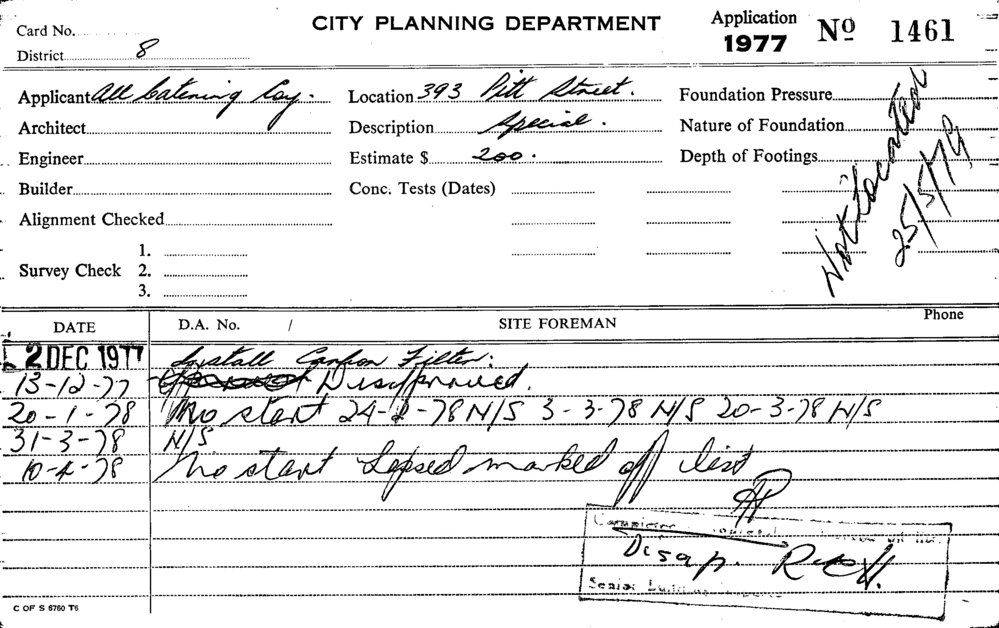 Card No.
District 8
CITY PLANNING DEPARTMENT
Application
1977
No 1461
Applicant All Catering Coy.
Architect
Engineer
Builder
Alignment Checked
Survey Check 1.
2.
3.
Location 393 Pitt Street.
Description Special.
Estimate $ 200.
Conc. Tests (Dates)
Foundation Pressure
Nature of Foundation
Depth of Footings
Not located
25/5/79
DATE D.A. No. / SITE FOREMAN Phone
2 DEC 1977 Install Carbon Filter.
13-12-77 Disapproved.
20-1-78 No start 24-2-78 N/S 3-3-78 N/S 20-3-78 N/S
31-3-78 N/S
10-4-78 No start Lapsed marked off list
Disap.
Senior
C OF S 6760 T6